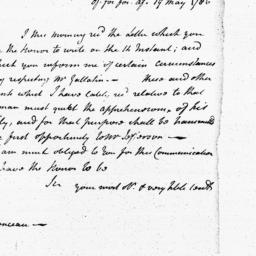 19 May 1786
I this morning rec'd the Letter which you
the Honor to write on the 16 Instant; and
you inform me of certain circumstances
respecting Mr Gallatin — these and other
which I have lately rec'd relative to that
man must quiet the apprehensions of his
and for that purpose shall be transmitted
first opportunity to Mr Jefferson —
am much obliged to You for this Communication
have the Honor to be
Sir your most Ob. & very hble Servt